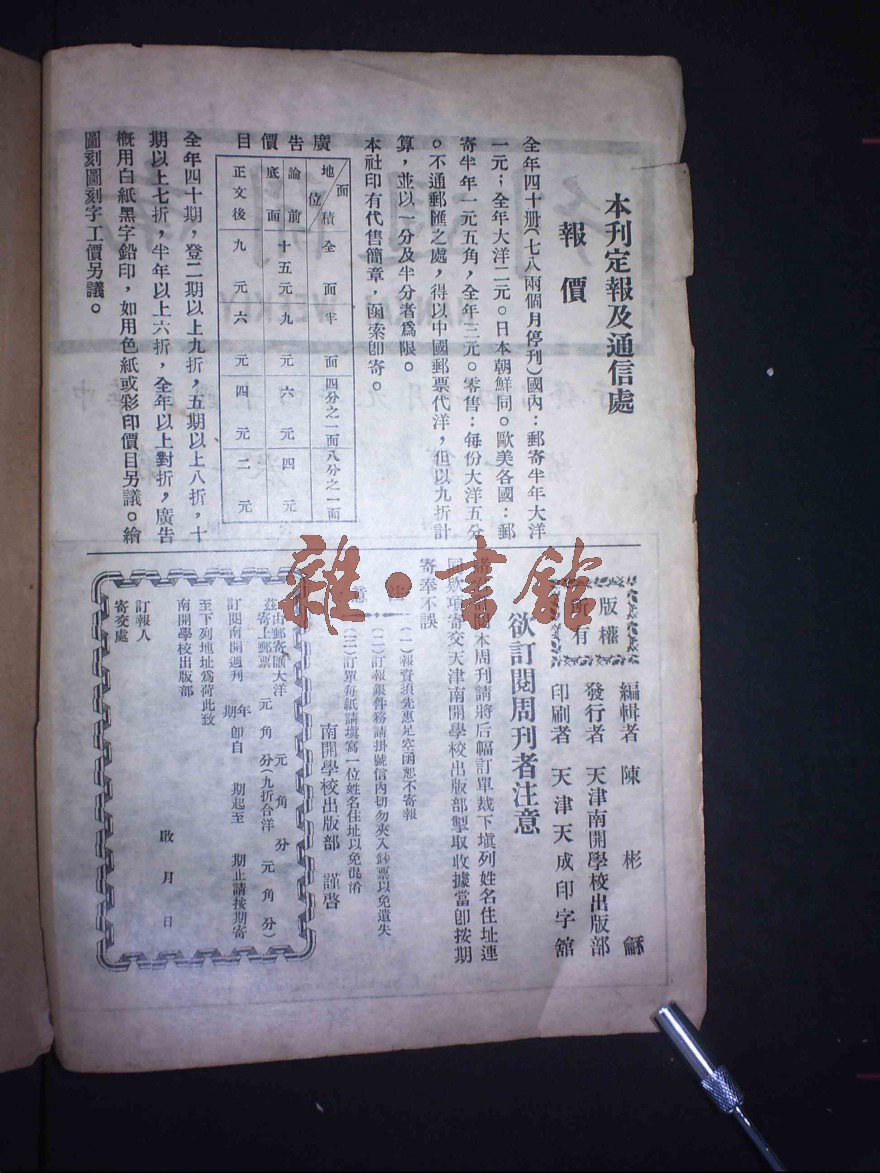 本刊定報及通信處
報價
全年四十册(七八兩個月停刊)國內：郵寄半年大洋
一元；全年大洋二元。日本朝鮮同。歐美各國：郵
寄半年一元五角，全年三元。零售：每份大洋五分
。不通郵匯之處，得以中國郵票代洋，但以九折計
算，並以一分及半分者爲限。
本社印有代售簡章，函索卽寄。
廣告價目
面積 地位 全面 半面 四分之一面 八分之一面
論前 底面 十五元 九元 六元 四元
正文後 九元 六元 四元 二元
全年四十期，登二期以上九折，五期以上八折，十
期以上七折，半年以上六折，全年以上對折，廣告
概用白紙黑字鉛印，如用色紙或彩印價目另議。繪
圖刻圖刻字工價另議。
版權所有
編輯者 陳彬龢
發行者 天津南開學校出版部
印刷者 天津天成印字舘
欲訂閱周刊者注意
本周刊請將后幅訂單裁下塡列姓名住址連
欵項寄交天津南開學校出版部掣取收據當卽按期
寄奉不誤
(一)報資須先惠足空函恕不寄報
(二)訂報銀件務請掛號信內切勿夾入鈔票以免遺失
(三)訂單每紙請塡寫一位姓名住址以免混淆
南開學校出版部 謹啓
茲由郵寄匯大洋 元 角 分
寄上郵票 元 角 分(九折合洋 元 角 分)
訂閱南開週刊 年 期 卽自 期起至 期止請按期寄
至下列地址爲荷此致
南開學校出版部
啟 月 日
訂報人
寄交處
雜·書館